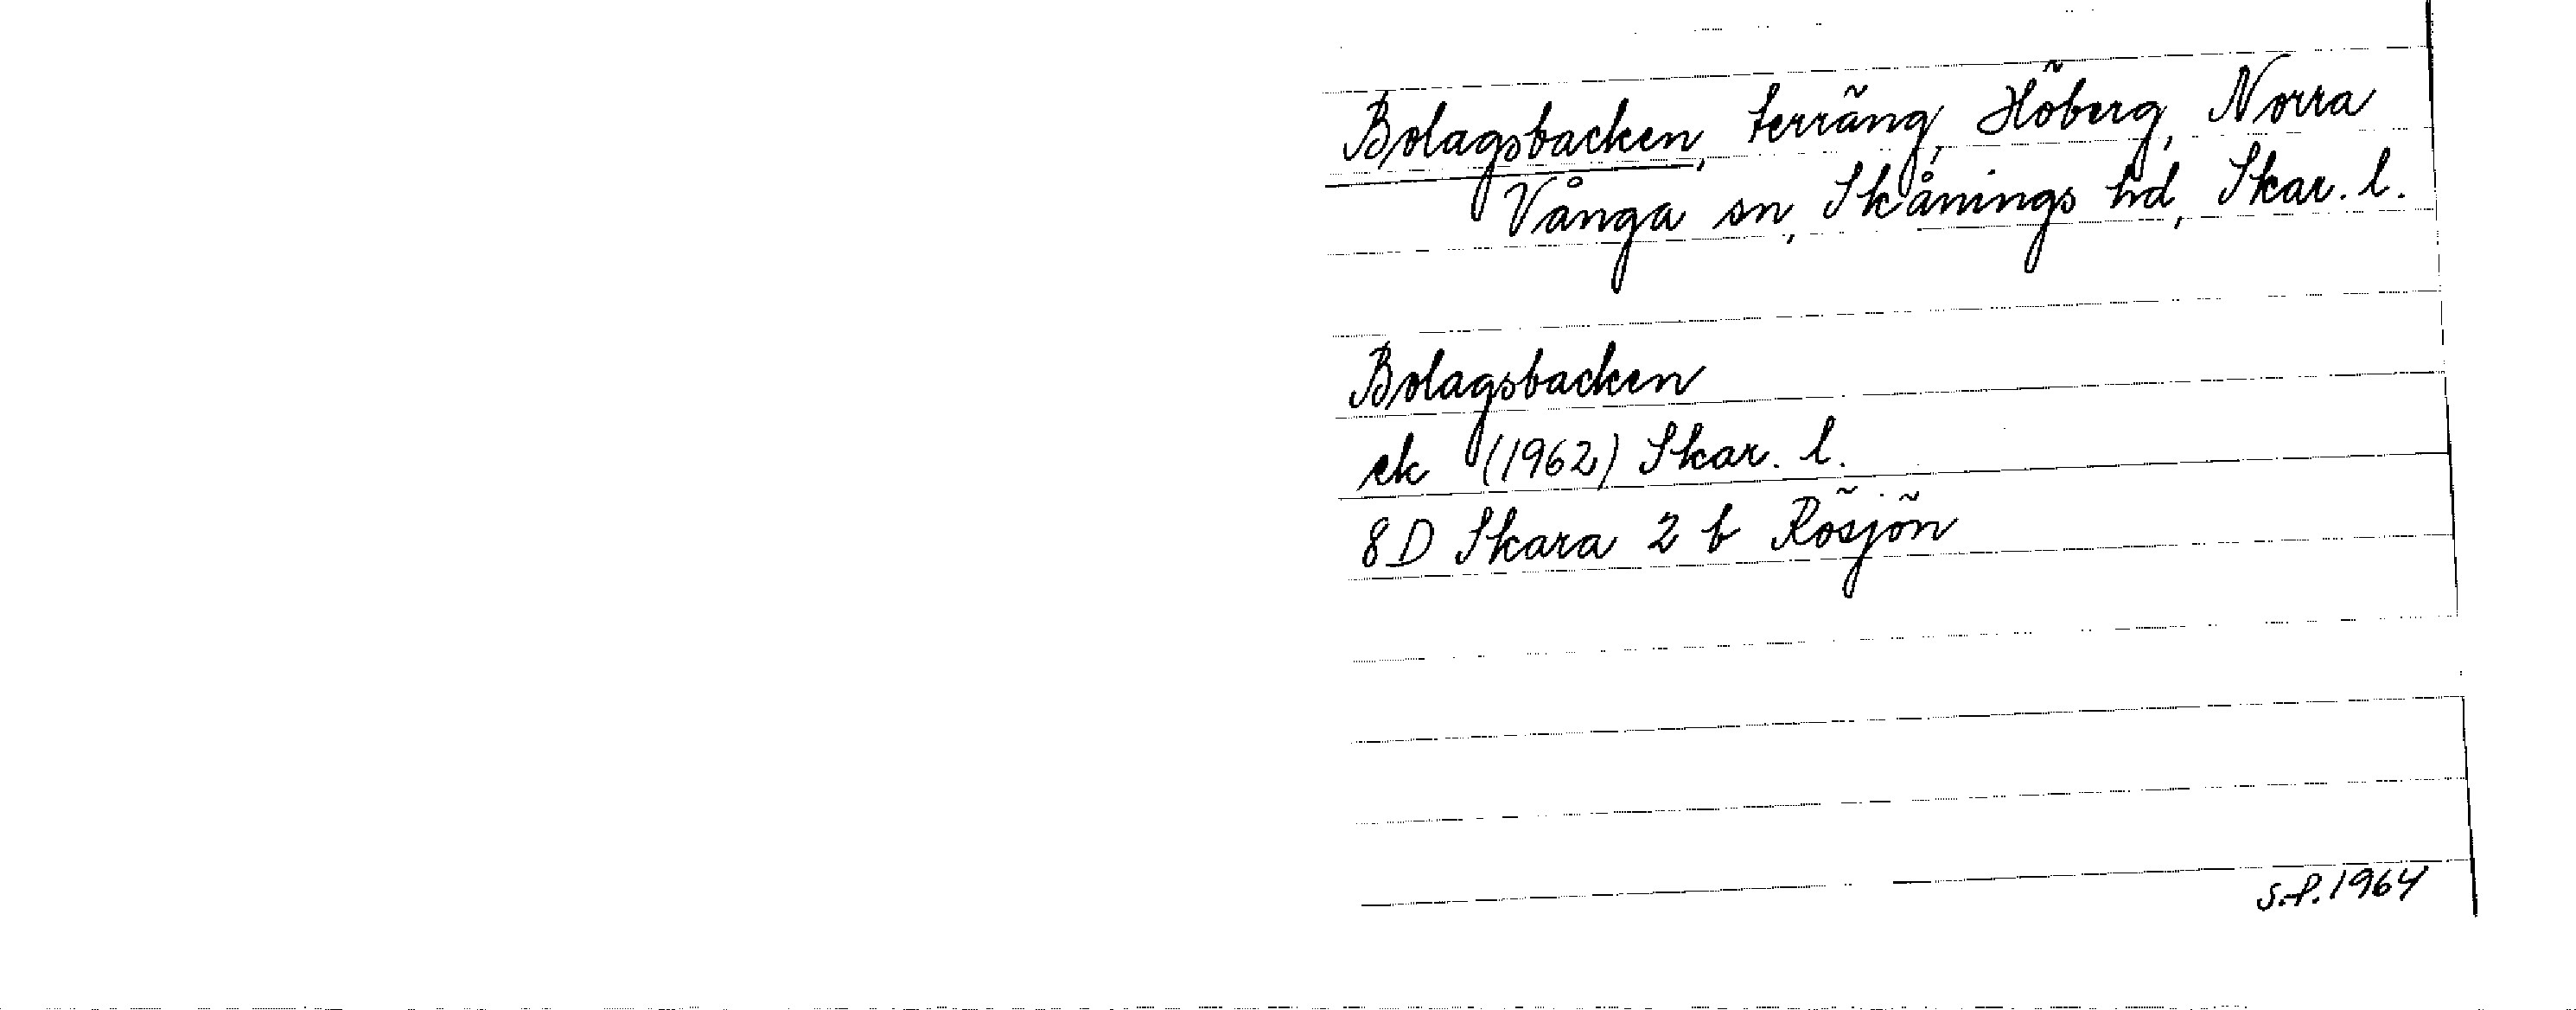 Bolagsbacken, terräng, Höberg, Norra
Vånga sn, Skånings hd, Skar. l.
Bolagsbacken
ek (1962) Skar. l.
8D Skara 2 b Rösjön
S.P. 1964